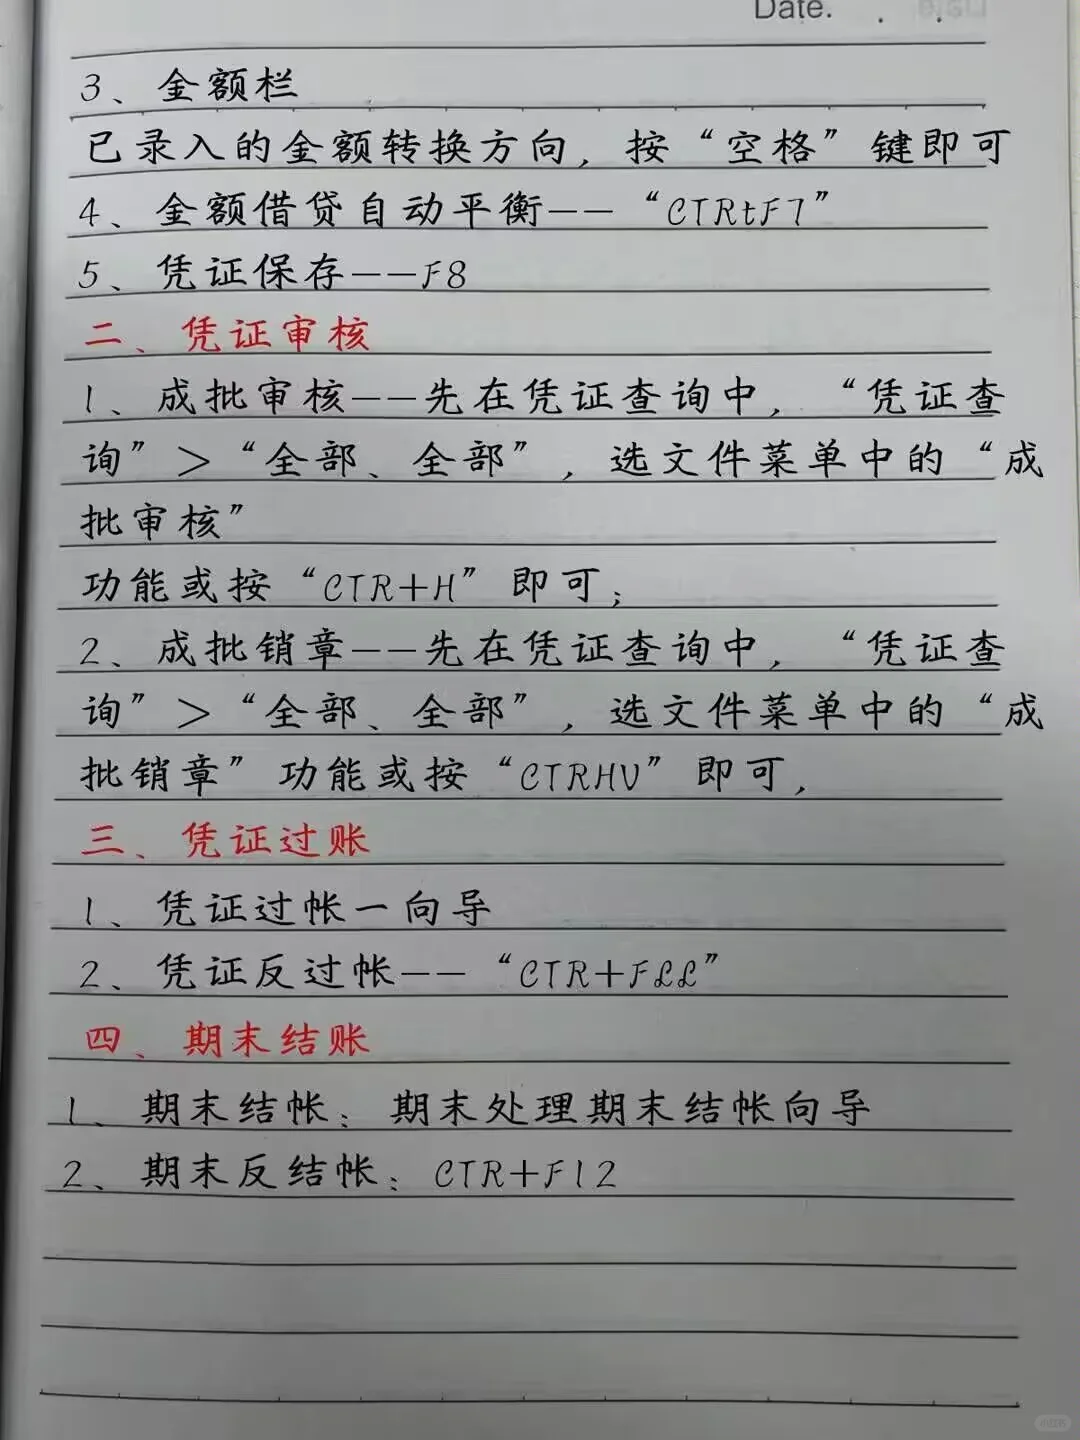 Date.
3、金额栏
已录入的金额转换方向，按“空格”键即可
4、金额借贷自动平衡--“CTRtF7”
5、凭证保存--F8
二、凭证审核
1、成批审核--先在凭证查询中，“凭证查
询”>“全部、全部”，选文件菜单中的“成
批审核”
功能或按“CTR+H”即可；
2、成批销章--先在凭证查询中，“凭证查
询”>“全部、全部”，选文件菜单中的“成
批销章”功能或按“CTRHU”即可，
三、凭证过账
1、凭证过帐一向导
2、凭证反过帐--“CTR+FLL”
四、期末结账
1、期末结帐：期末处理期末结帐向导
2、期末反结帐：CTR+F12
小红书